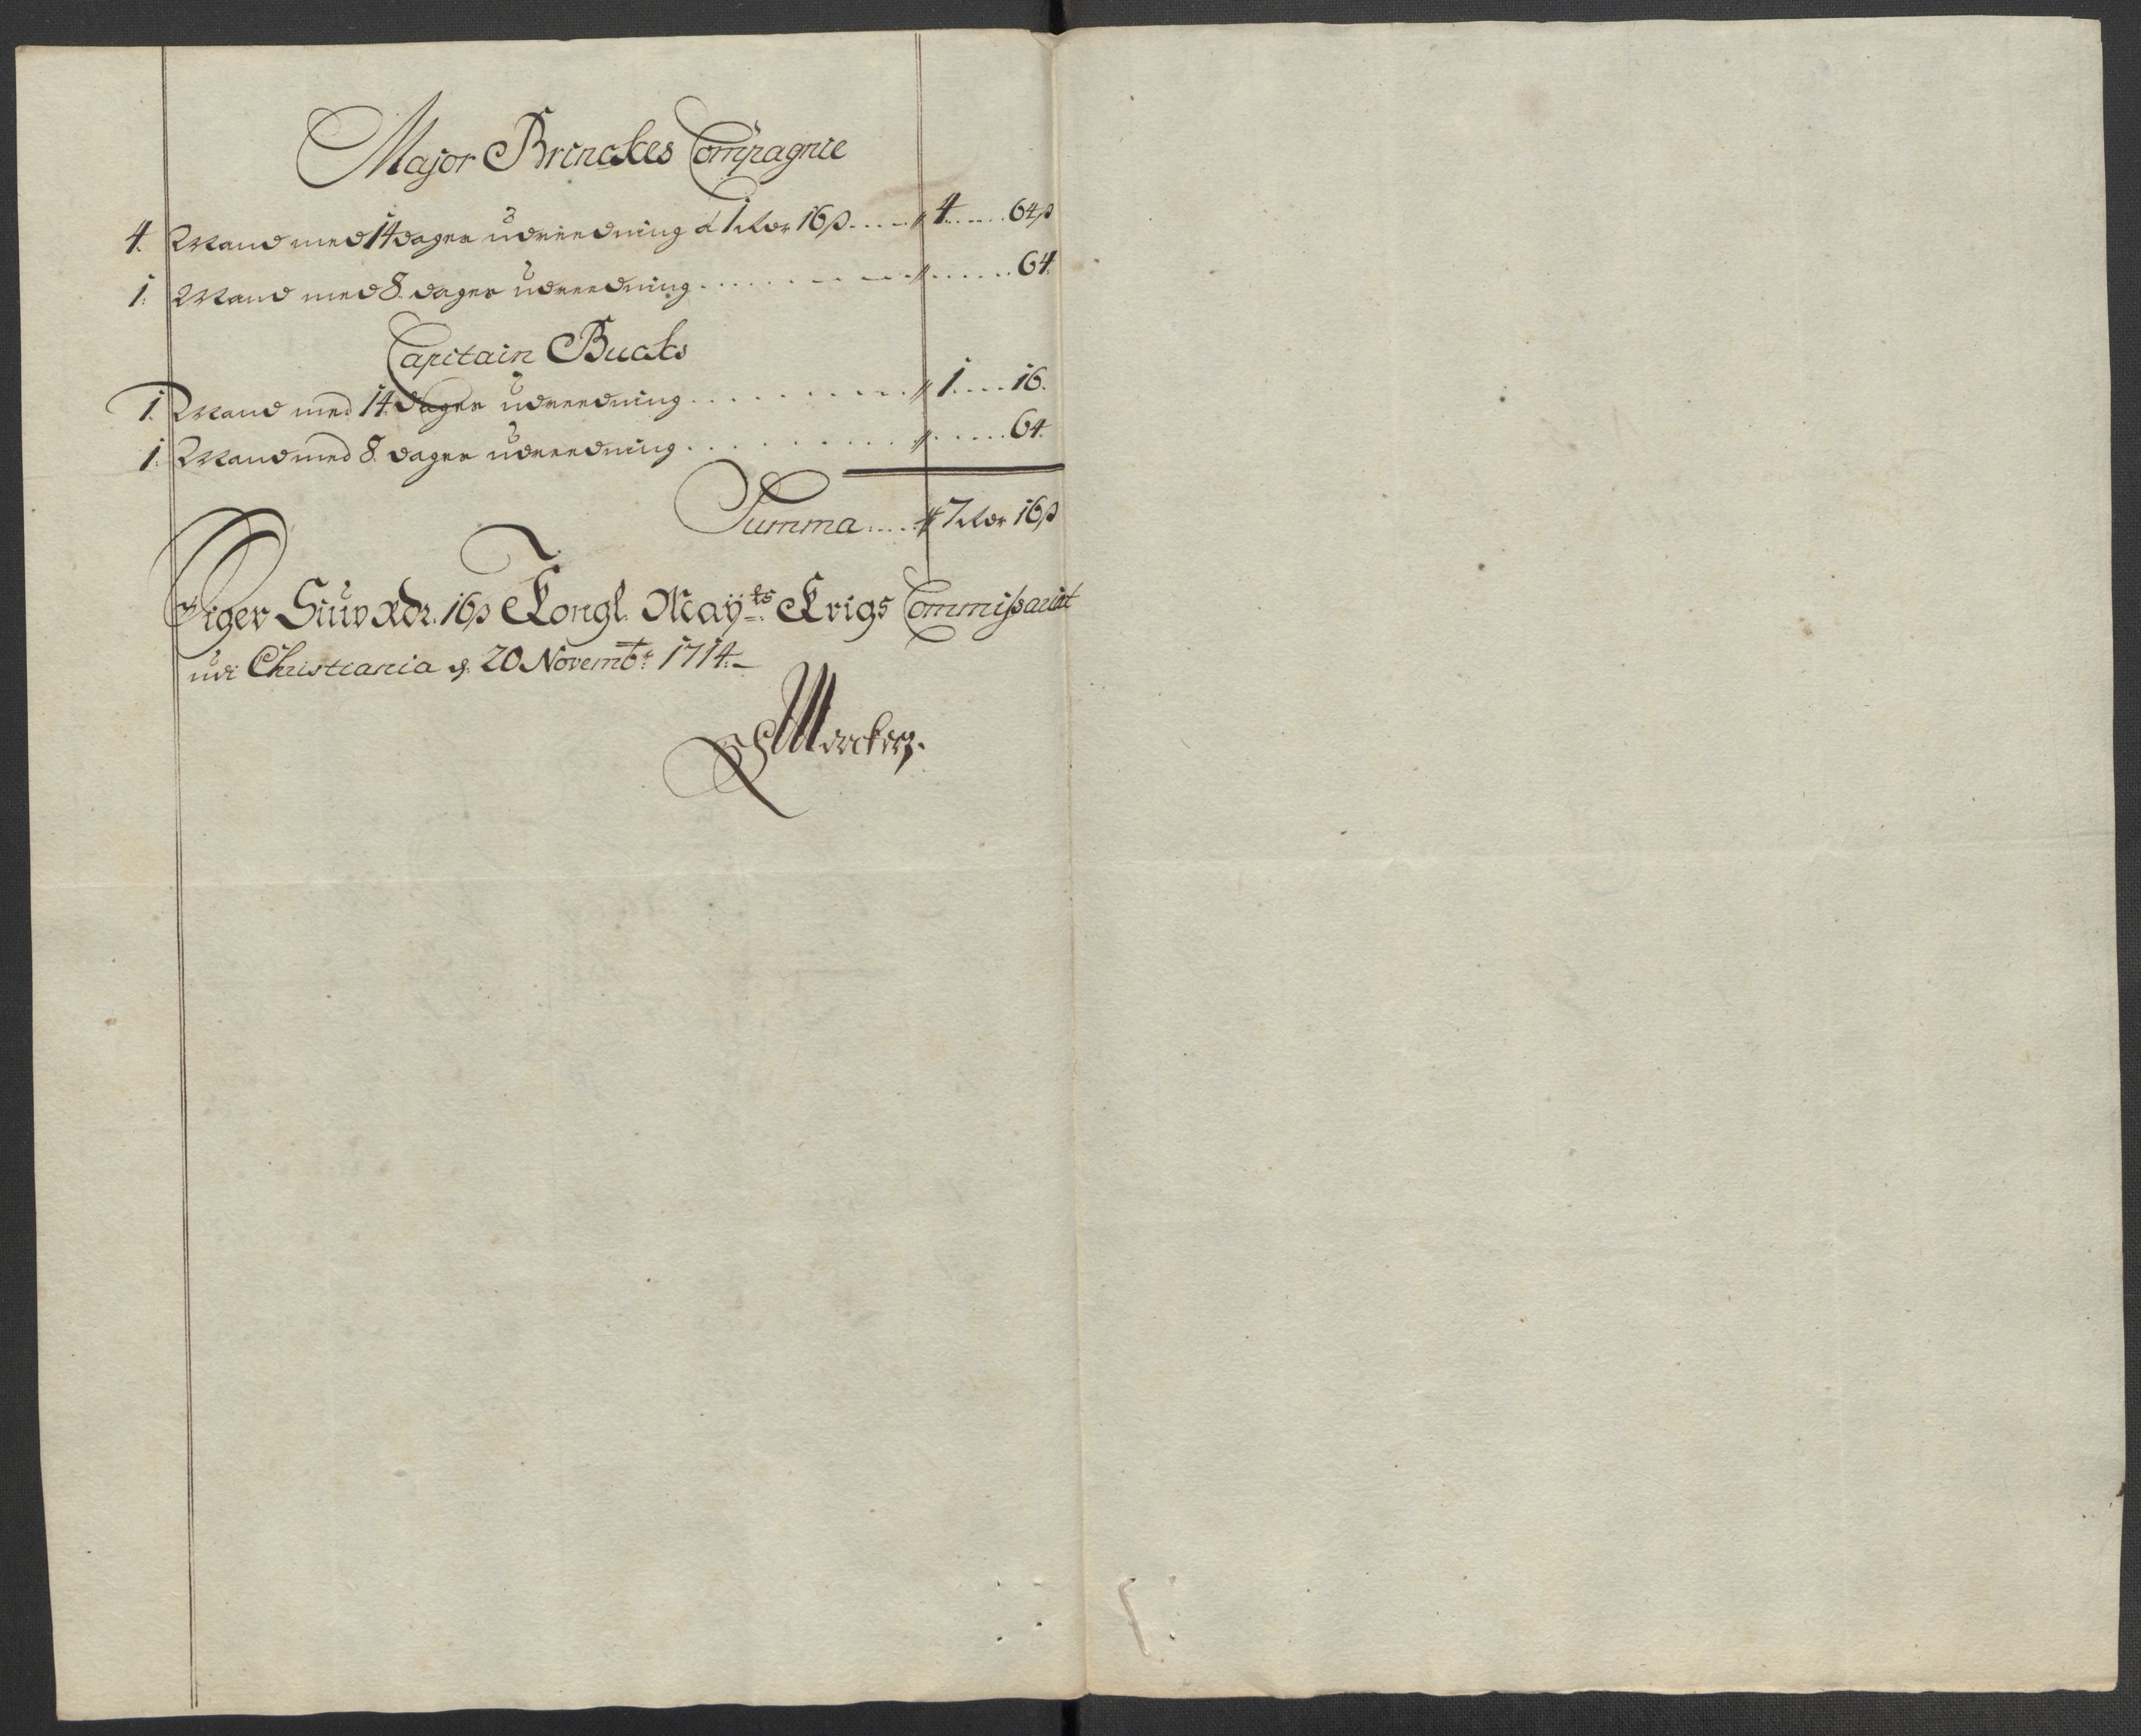 Major Brinckes Compagnie
4. Mand med 14 dages udreedning a 1 Rdr 16 β..... 4..... 64 β
1. Mand med 8. dages udreedning ......... 64.
Capitain Bucks
1. Mand med 14. dages udreedning ......... 1.... 16.
1. Mand med 8. dages udreedning ......... 64.
Summa..... 7 Rdr 16 β
Siger Siuv Rdr. 16 β Kongl. Mayts Krigs Commissariat
udi Christiania d. 20 Novembr 1714.